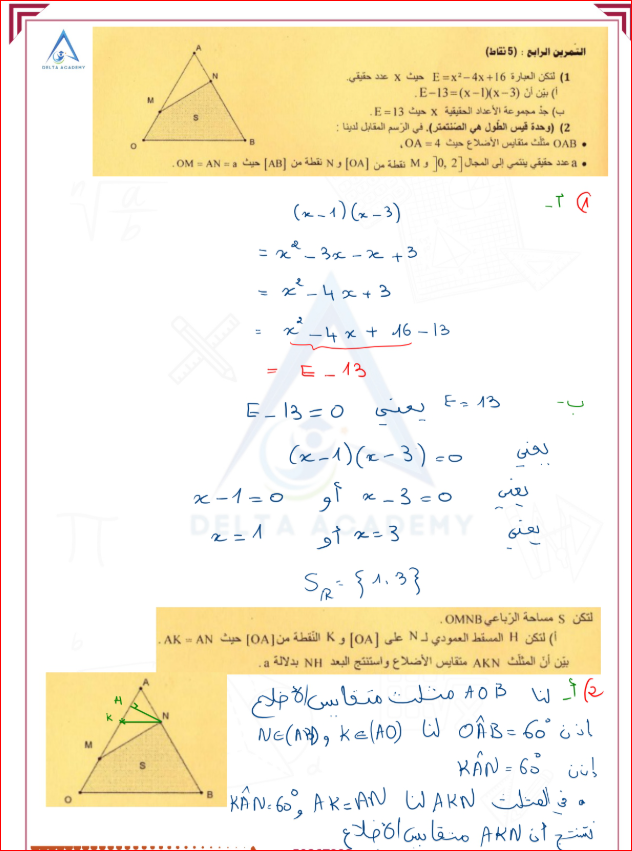 DELTA ACADEMY
التمرين الرابع : (5 نقاط)
1) لتكن العبارة E=x²−4x+16 حيث x عدد حقيقي.
أ) بيّن أنّ E−13=(x−1)(x−3) .
ب) جدْ مجموعة الأعداد الحقيقية x حيث E=13 .
2) (وحدة قيس الطّول هي الصّنتمتر). في الرّسم المقابل لدينا :
• OAB مثلّث متقايس الأضلاع حيث OA=4 ،
• a عدد حقيقي ينتمي إلى المجال ]0, 2[ و M نقطة من [OA] و N نقطة من [AB] حيث OM = AN = a .
A
N
M
S
O B
1) أ-
(x-1)(x-3)
= x² - 3x - x + 3
= x² - 4x + 3
= x² - 4x + 16 - 13
= E - 13
ب- E = 13 يعني E - 13 = 0
يعني (x-1)(x-3) = 0
يعني x - 3 = 0 أو x - 1 = 0
DELTA ACADEMY
يعني x = 3 أو x = 1
S_ℝ = {1.3}
لتكن S مساحة الرّباعي OMNB.
أ) لتكن H المسقط العمودي لـ N على [OA] و K النّقطة من [OA] حيث AK = AN .
بيّن أنّ المثلّث AKN متقايس الأضلاع واستنتج البعد NH بدلالة a.
A
H
K N
M
S
O B
2) أ- لنا AOB مثلث متقايس الأضلاع
إذن OÂB = 60° لنا K∈(AO) و N∈(AB)
إذن KÂN = 60°
• في المثلث AKN لنا AK = AN و KÂN = 60°
نستنتج أن AKN متقايس الأضلاع